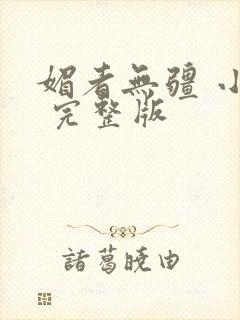 媚者無疆 小
完整版
諸葛曉由